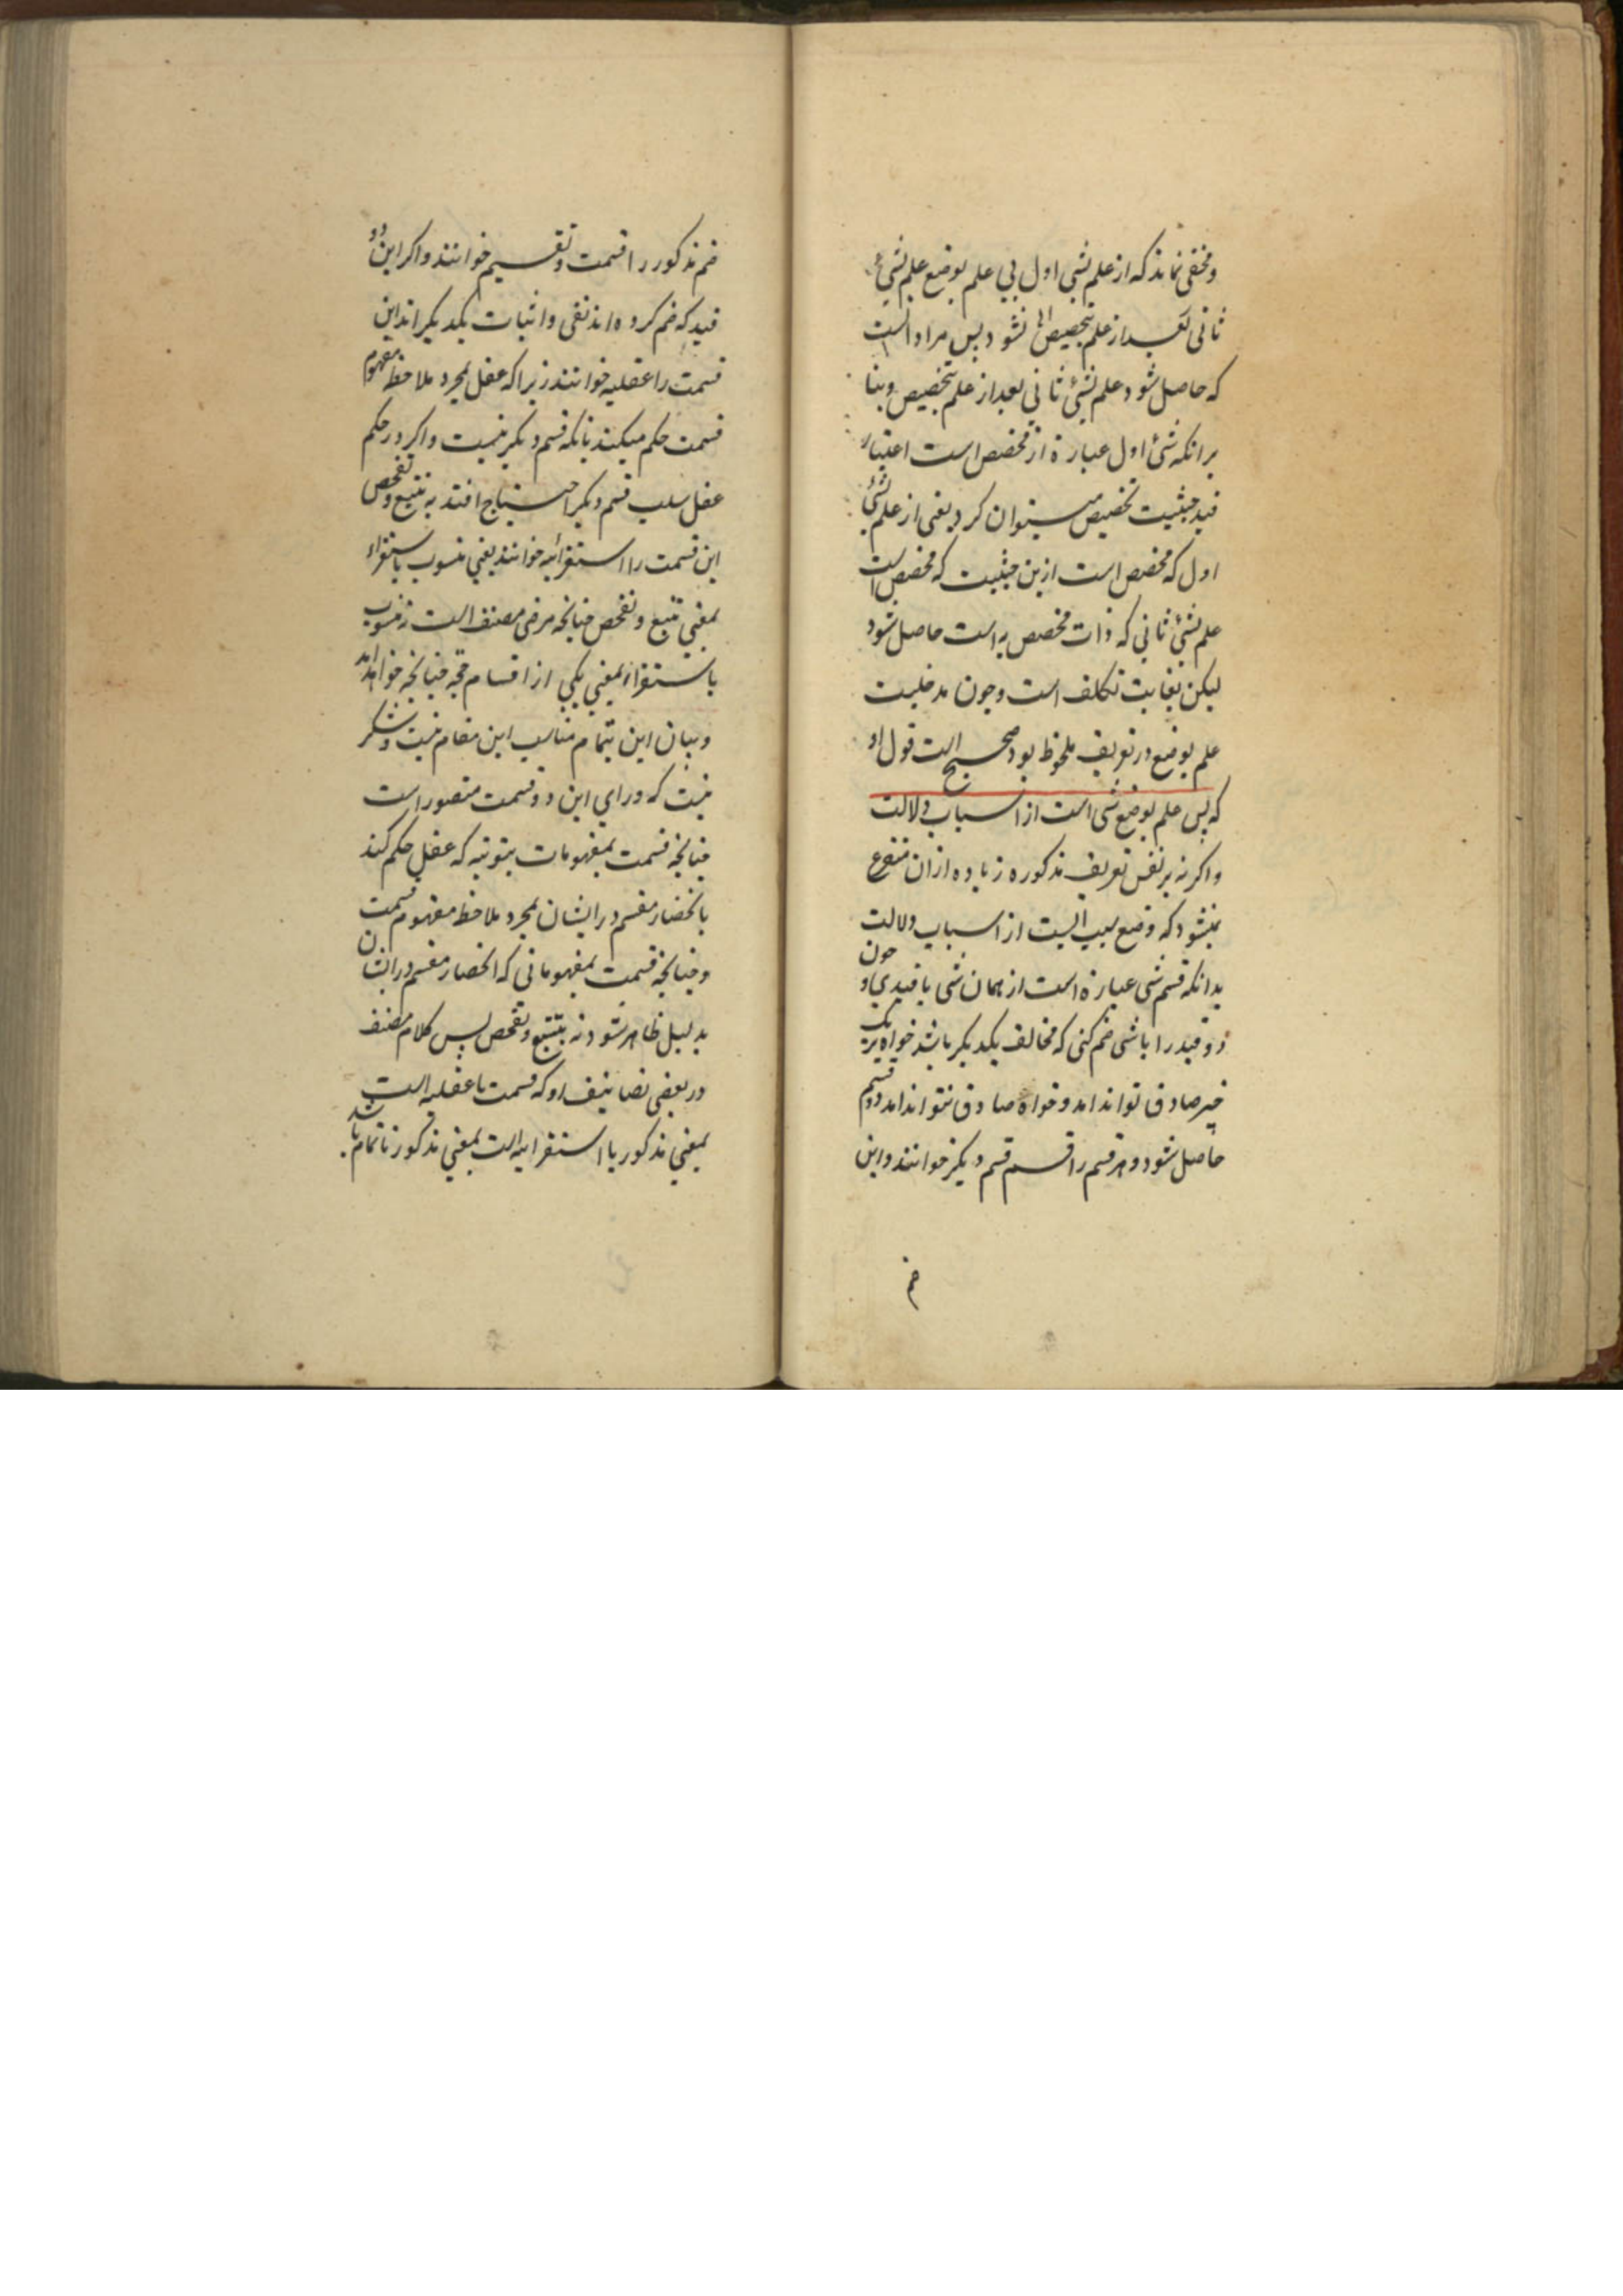 ومخفی نماند که از علم بشی اول بی علم بوضع علم بشیء
ثانی بعد از علم بتخصیص الا نشود پس مراد انست
که حاصل شود علم بشئ ثانی بعد از علم بتخصیص وبنا
برانکه شئ اول عبارة از مخصص است اعتبار
قید حیثیت تخصیص میتوان کرد یعنی از علم بشئ
اول که مخصص است ازین حیثیت که مخصص است
علم بشئ ثانی که ذات مخصص به است حاصل شود
لیکن بغایت تکلف است وچون مدخلیت
علم بوضع در تعریف ملحوظ بود صحیح است قول او
که پس علم بوضع شی است از اسباب دلالت
واکر نه بر نفس تعریف مذکوره زیاده ازان متفرع
نمیشود که وضع سببیست از اسباب دلالت
بدانکه قسم شی عبارة است از همان شی با قیدی و چون
دو قید را با شی ضم کنی که مخالف یکدیکر باشد خواه بر یک
چیز صادق تواند امد وخواه صادق نتواند امد دو قسم
حاصل شود وهر قسم را قسیم قسم دیکر خوانند واین
ضم
ضم مذکور را قسمت وتقسیم خوانند واکر این دو
قید که ضم کرده اند نفی واثبات یکدیکر اند این
قسمت را عقلیه خوانند زیرا که عقل بمجرد ملاحظه مفهوم
قسمت حکم میکند بانکه قسم دیکر نیست واکر در حکم
عقل بسلب قسم دیکر احتیاج افتد به تتبع وتفحص
این قسمت را استقرائیه خوانند یعنی منسوب باستقراء
بمعنی تتبع وتفحص چنانچه مرضی مصنف است نه منسوب
باستقراء بمعنی یکی از اقسام حجه چنانچه خواهد امد
وبیان این بتمام مناسب این مقام نیست وشک
نیست که ورای این دو قسمت متصور است
چنانچه قسمت بمفهومات ثبوتیه که عقل حکم کند
بانحصار مقسم در ایشان بمجرد ملاحظه مفهوم قسمت
وچنانچه قسمت بمفهوماتی که انحصار مقسم در ایشان
بدلیل ظاهر شود نه بتتبع وتفحص پس کلام مصنف
در بعضی تصانیف او که قسمت یا عقلیه است
بمعنی مذکور یا استقرائیه است بمعنی مذکور ناتمام باشد